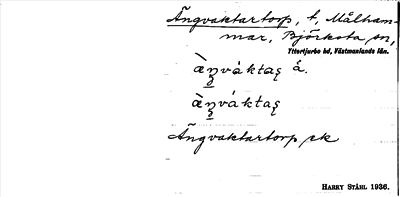 Ängvaktartorp, t, Målham-
mar, Björksta sn,
Yttertjurbo hd, Västmanlands län.
àŋváktaʂ å.
àŋváktaʂ
Ängvaktartorp ek
HARRY STÅHL 1936.